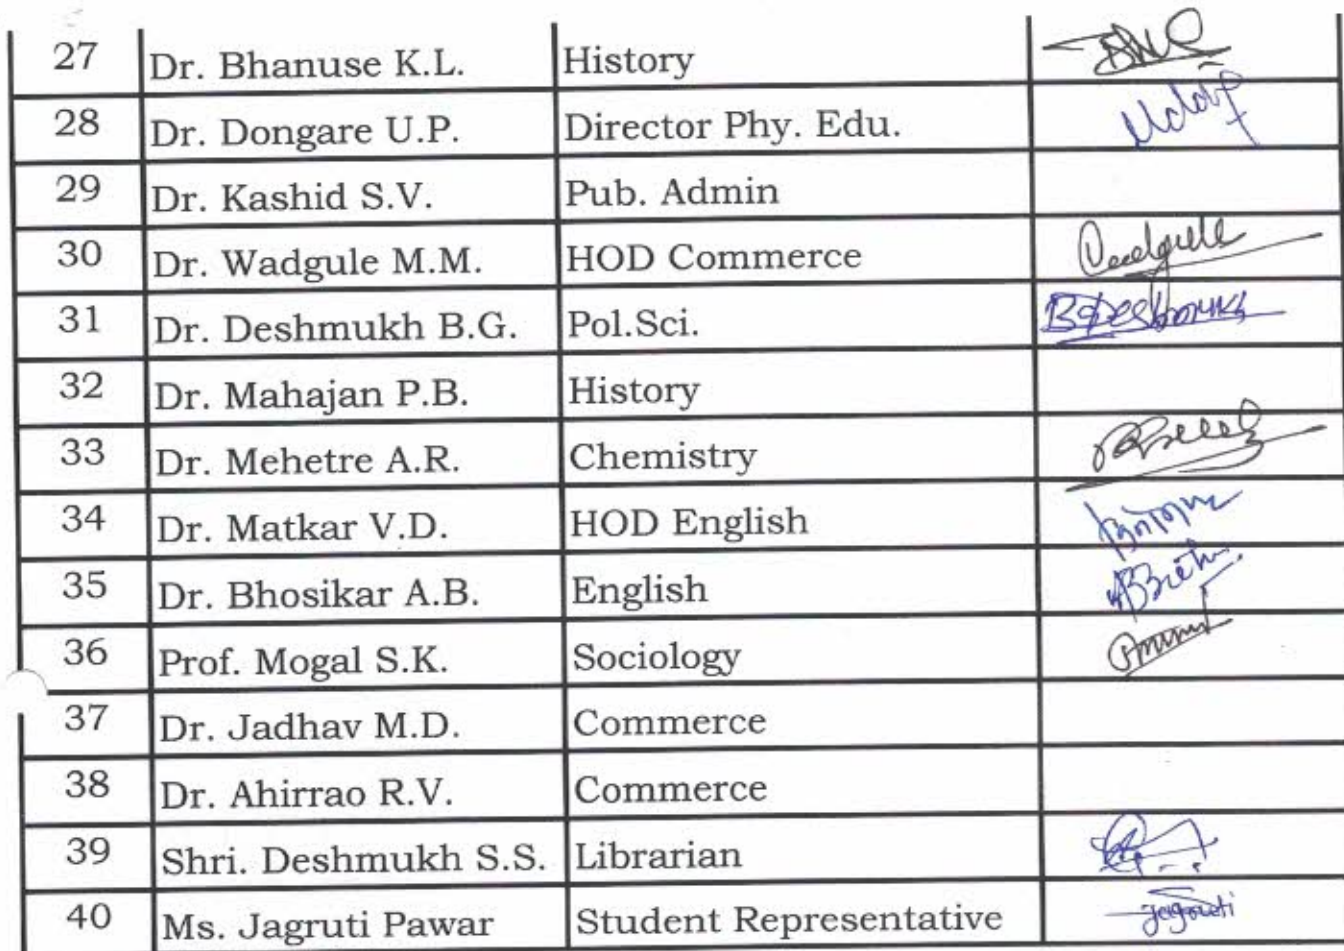 27 Dr. Bhanuse K.L. History
28 Dr. Dongare U.P. Director Phy. Edu.
29 Dr. Kashid S.V. Pub. Admin
30 Dr. Wadgule M.M. HOD Commerce Wadgule
31 Dr. Deshmukh B.G. Pol.Sci. BGDeshmukh
32 Dr. Mahajan P.B. History
33 Dr. Mehetre A.R. Chemistry
34 Dr. Matkar V.D. HOD English
35 Dr. Bhosikar A.B. English
36 Prof. Mogal S.K. Sociology
37 Dr. Jadhav M.D. Commerce
38 Dr. Ahirrao R.V. Commerce
39 Shri. Deshmukh S.S. Librarian
40 Ms. Jagruti Pawar Student Representative Jagruti